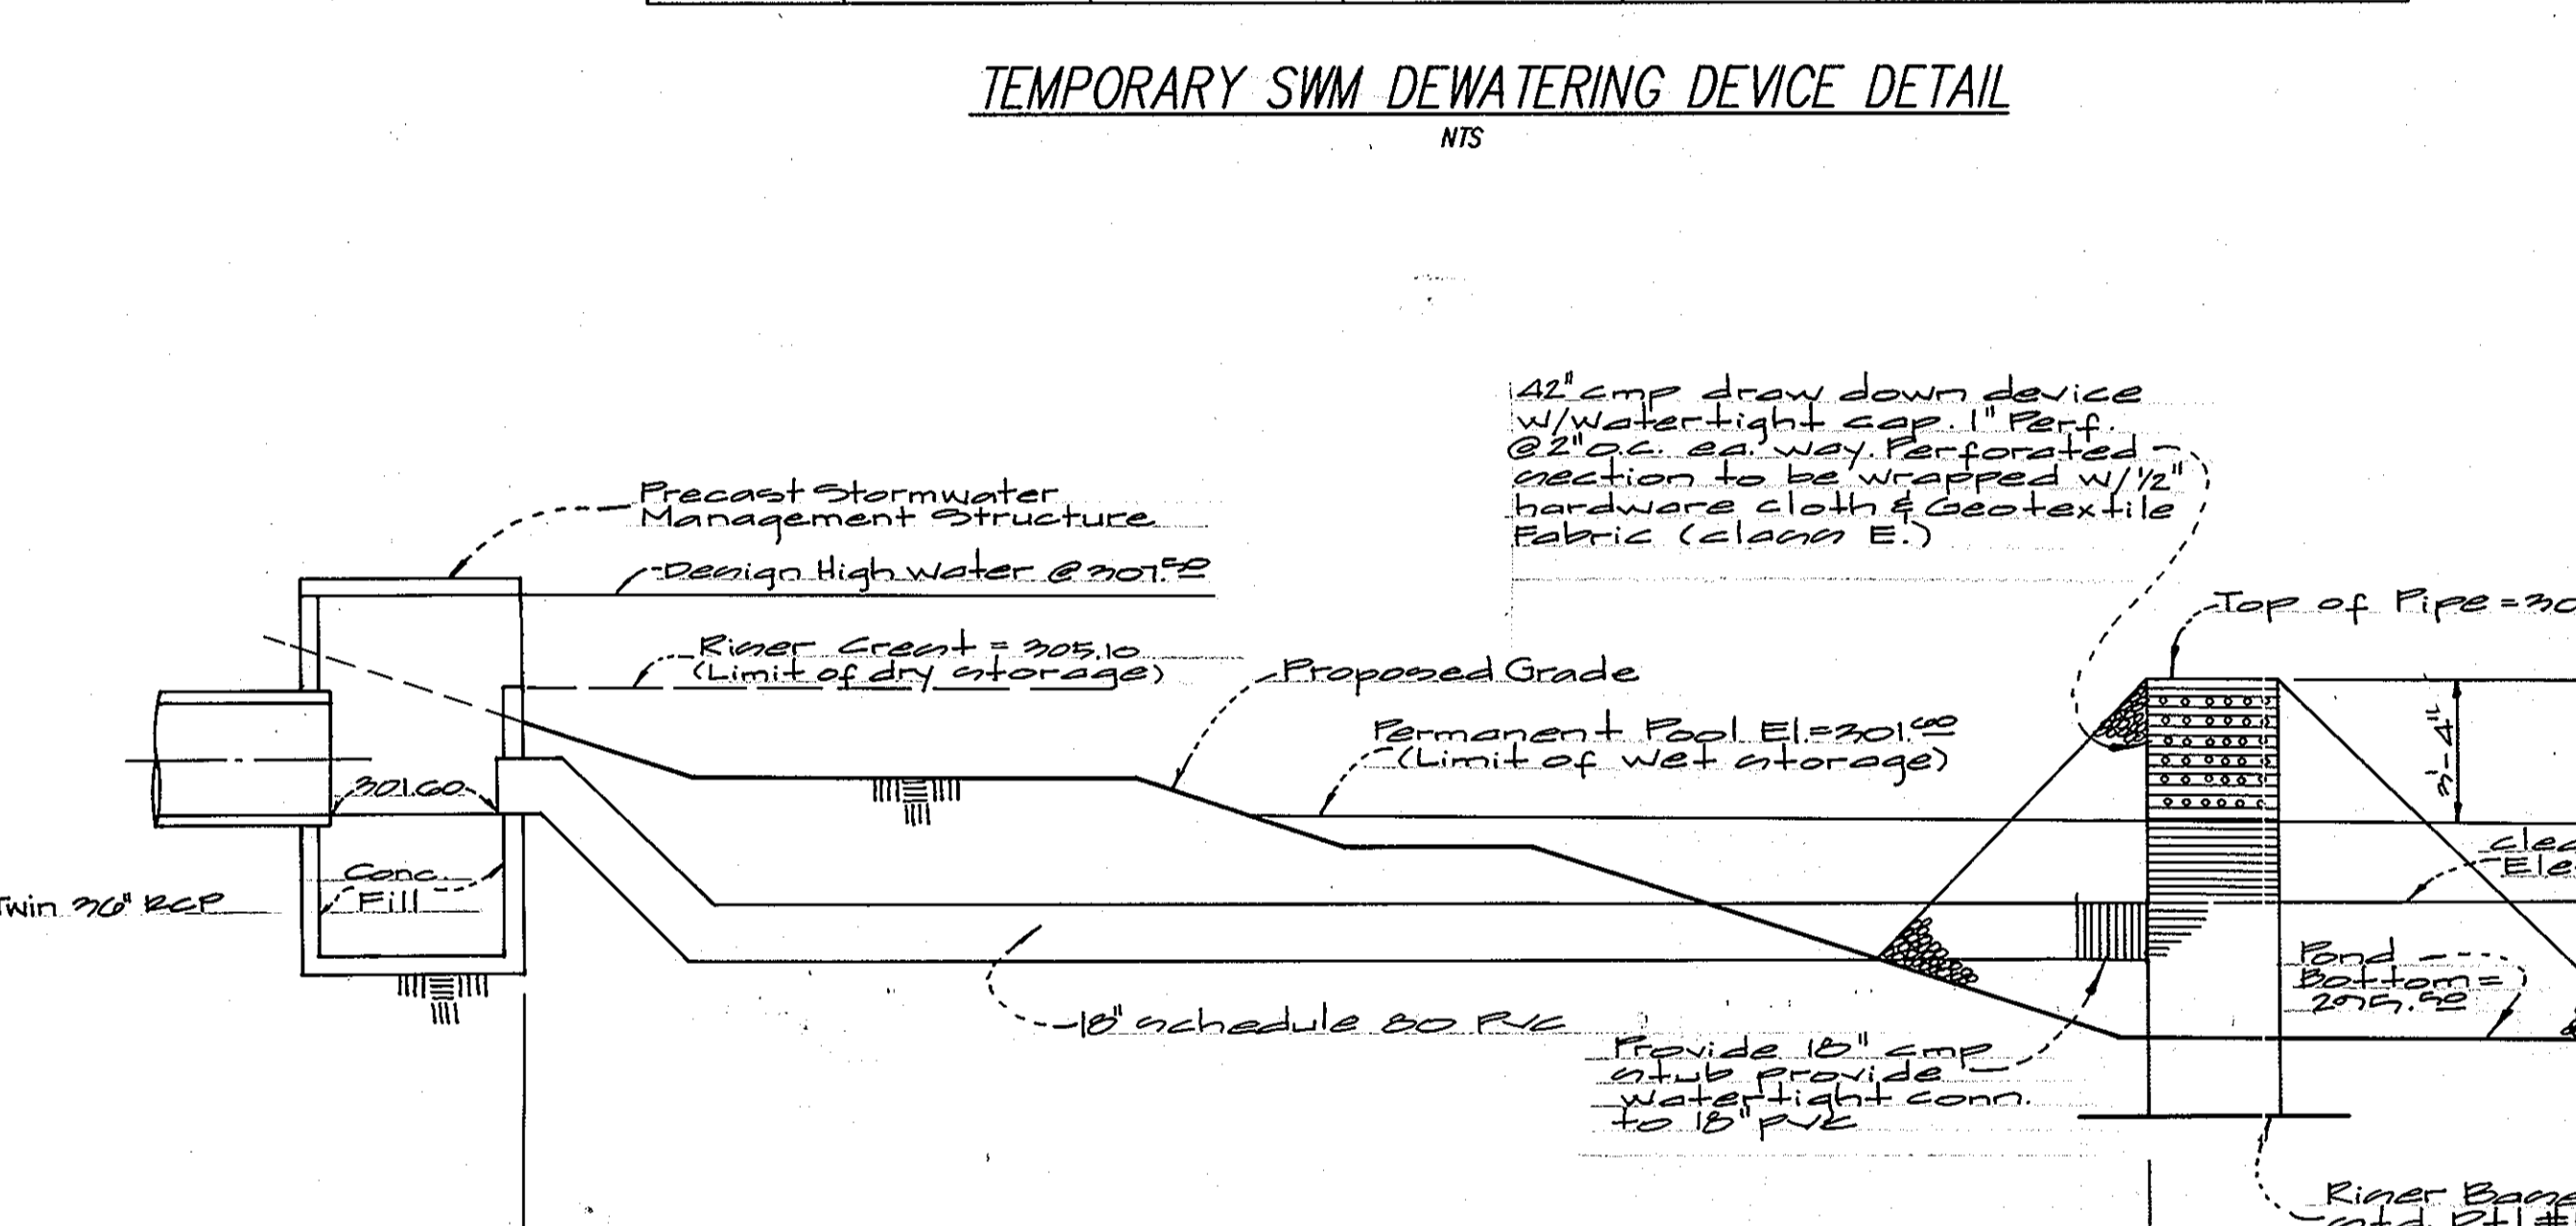 TEMPORARY SWM DEWATERING DEVICE DETAIL
NTS
42" cmp draw down device
w/watertight cap. 1" Perf.
@2" o.c. ea. way. Perforated
section to be wrapped w/ 1/2"
hardware cloth & Geotextile
Fabric (class E.)
Precast Stormwater
Management Structure
Design High Water @ 307.50
Top of Pipe = 30
Riser Crest = 305.10
(Limit of dry storage)
Proposed Grade
Permanent Pool El.=301.60
(Limit of wet storage)
3'-4"
301.60
Conc.
Fill
Twin 36" RCP
Pond
Bottom =
295.50
18" schedule 80 PVC
Provide 18" cmp
stub provide
watertight conn.
to 18" PVC
Riser Base